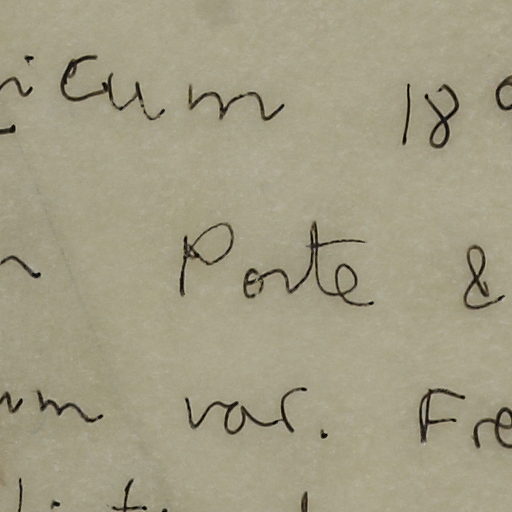 icum 18
Porte &
um var. Fre